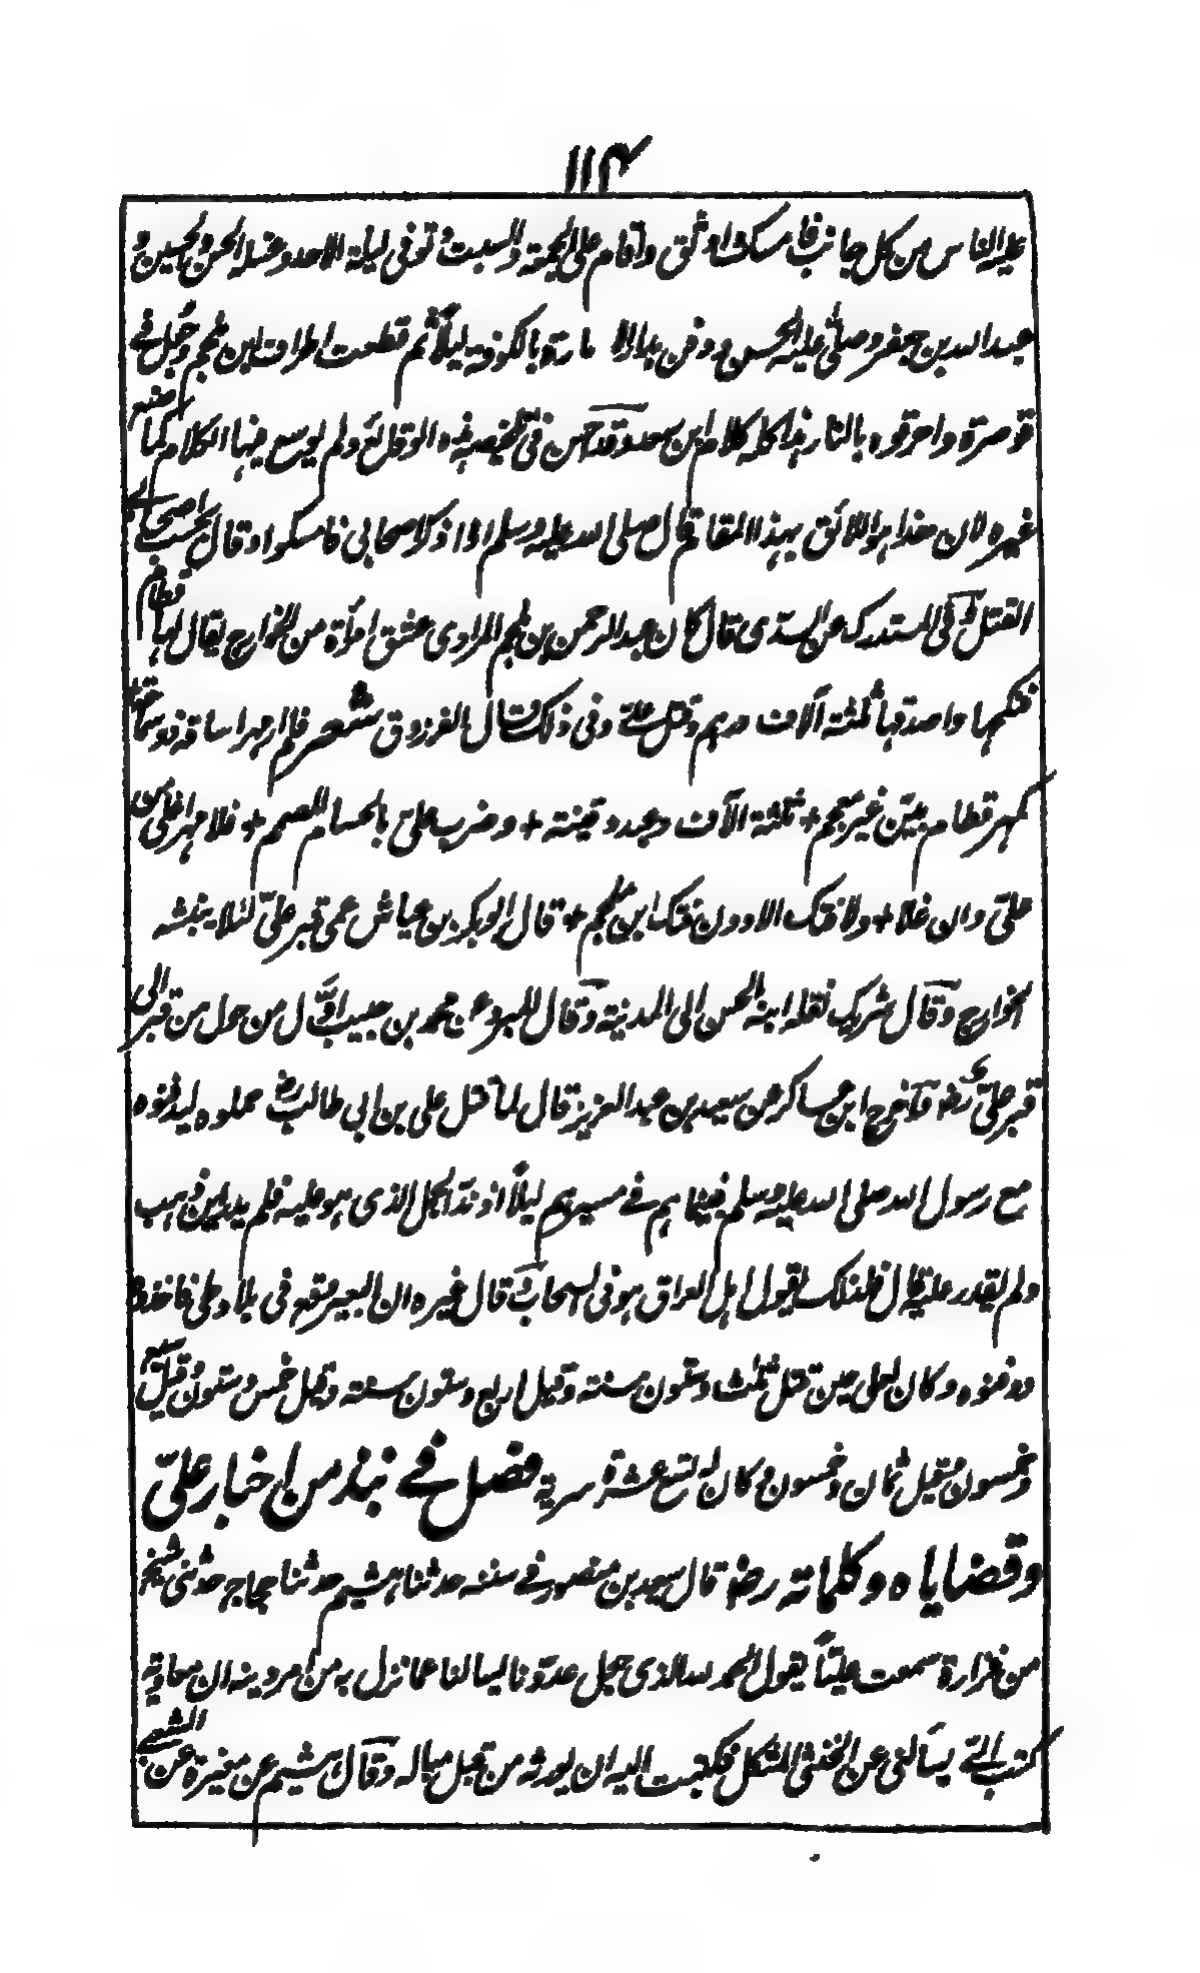 ١١٤
عليه الناس من كل جانب فامسك واوثق واقام علي الجمعة والسبت وتوفي ليلة الاحد وغسله الحسن والحسين و
عبد الله بن جعفر وصلى عليه الحسن ودفن بدار الامارة بالكوفة ليلاً ثم قطعت اطراف ابن ملجم وجعل في
قوصرة واحرقوه بالنار هذا كله كلام ابن سعد وقد احسن في تلخيصه هذه الوقائع ولم يوسع فيها الكلام كما صنع
غيره لان هذا هو اللائق بهذا المقام قال صلى الله عليه وسلم اذا ذكر اصحابي فامسكوا وقال بحسب اصحابي
القتل وفي المستدرك عن السدى قال كان عبد الرحمن بن ملجم المرادى عشق امرأة من الخوارج يقال لها قطام
فنكحها واصدقها ثلثة آلاف درهم وقتل علي وفي ذلك قال الفرزدق شعر فلم ار مهرا ساقه ذو سماحة
كمهر قطام بيّن غير معجم + ثلثة الآف وعبد وقينة + وضرب علىّ بالحسام المصمم + فلا مهر اغلى من
علىّ وان غلا + ولا فتك الا دون فتك ابن ملجم + قال ابو بكر بن عياش عمى قبر علىّ لئلا ينبشه
الخوارج وقال شريك نقله ابنه الحسن الى المدينة وقال المبرد عن محمد بن حبيب اوّل من حول من قبر الى
قبر علىّ رض واخرج ابن عساكر عن سعيد بن عبد العزيز قال لما قتل على بن ابي طالب رض حملوه ليدفنوه
مع رسول الله صلى الله عليه وسلم فبينما هم في مسيرهم ليلاً اذ ندّ الجمل الذى هو عليه فلم يدر اين ذهب
ولم يقدر عليه قال فلذلك يقول اهل العراق هو في السحاب وقال غيره ان البعير وقع في بلاد طى فاخذوه
ودفنوه وكان لعلى حين قتل ثلث وستون سنة وقيل اربع وستون سنة وقيل خمس وستون وقيل سبع
وخمسون وقيل ثمان وخمسون وكان له تسع عشرة سرية فصل في نبذ من اخبار علىّ
وقضاياه وكلماته رض قال سعيد بن منصور في سننه حدثنا هشيم حدثنا حجاج حدثنى شيخ
من فزارة سمعت عليّاً يقول الحمد لله الذى جعل عدوّنا يسالنا عما نزل به من امر دينه ان معاوية
كتب الىّ يسألنى عن الخنثى المشكل فكتبت اليه ان يورثه من قبل مباله وقال هشيم عن مغيرة عن الشعبي